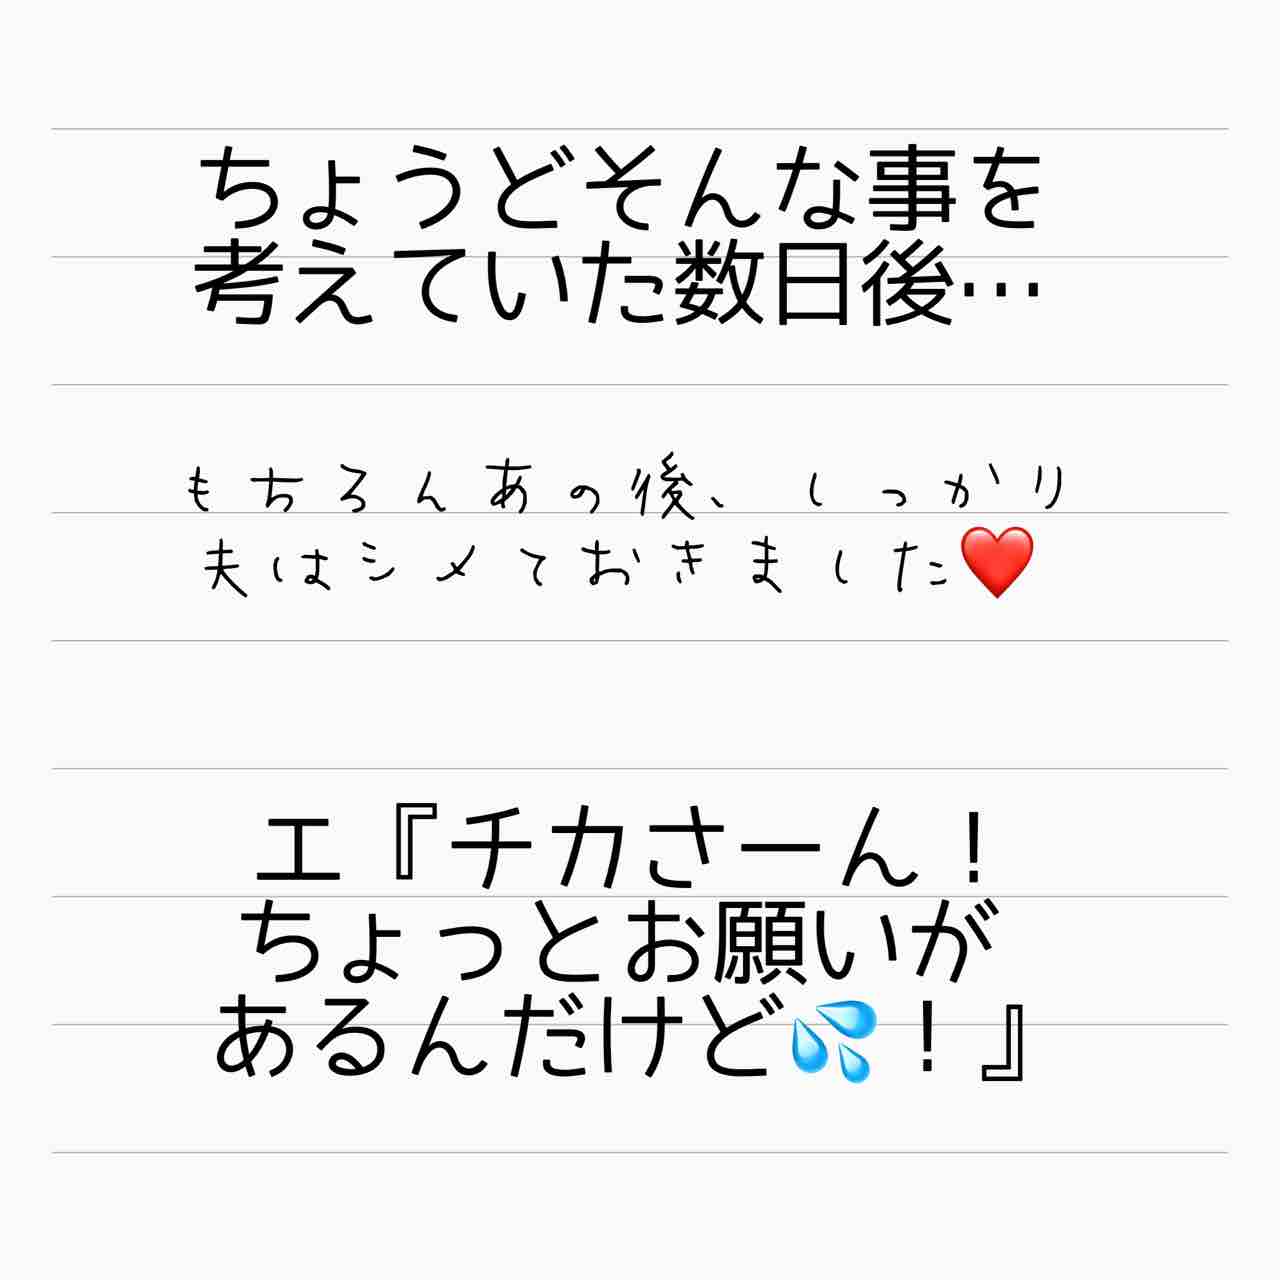 ちょうどそんな事を
考えていた数日後…
もちろんあの後、しっかり
夫はシメておきました❤️
エ『チカさーん！
ちょっとお願いが
あるんだけど💦！』